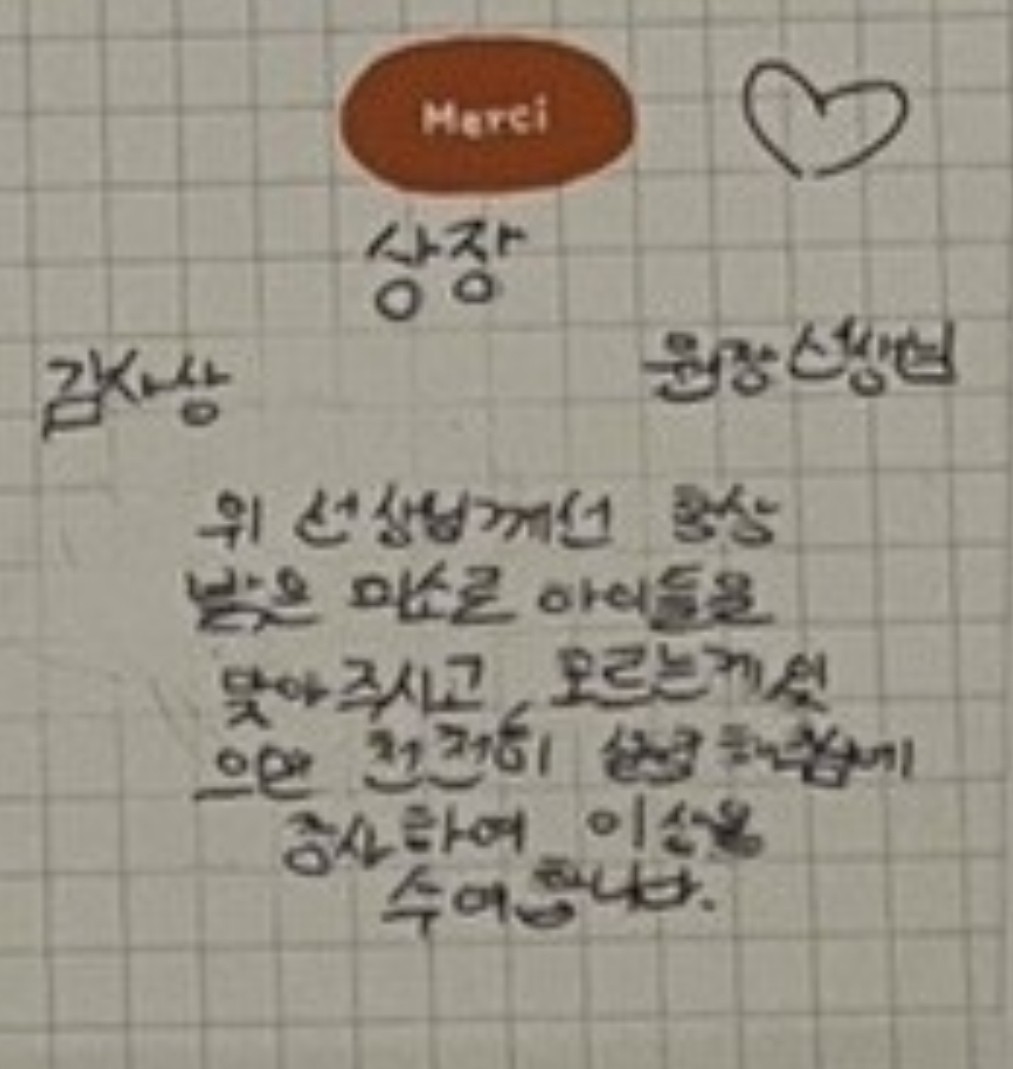 Merci
상장
감사상
원장선생님
위 선생님께선 항상
밝은 미소로 아이들을
맞아주시고, 모르는게 있
으면 천천히 설명해주심에
감사하여 이 상을
수여합니다.